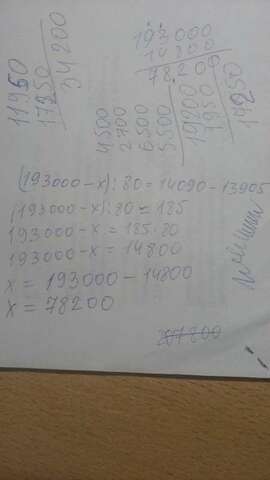 193000
14800
78200
11950
17250
34200
4500
2700
6500
5500
19200
7950
14250
(193000-x):80=14090-13905
(193000-x):80=185
193000-x=185·80
193000-x=14800
x=193000-14800
x=78200
207800